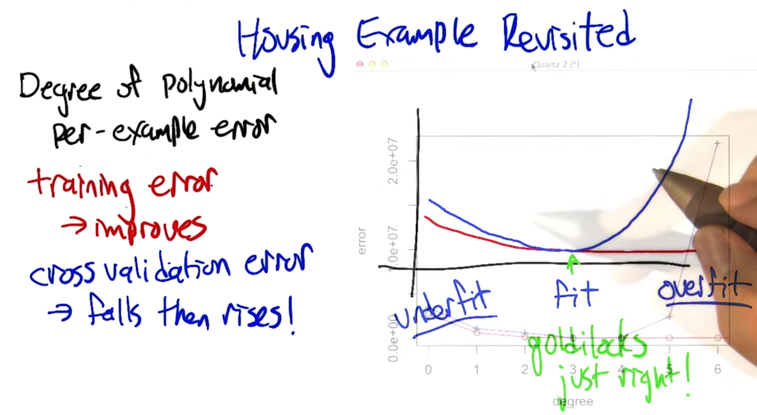 Housing Example Revisited
Degree of polynomial
per-example error
training error
→ improves
cross validation error
→ falls then rises!
Quartz 2 [*]
2.0e+07
error
0.0e+00
underfit
fit
overfit
goldilocks
just right!
0 1 2 4 5 6
degree